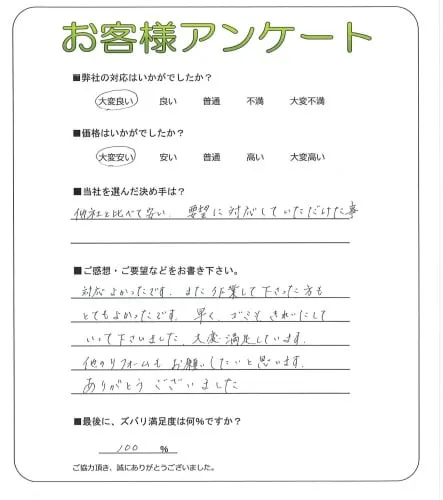 お客様アンケート
■弊社の対応はいかがでしたか？
大変良い 良い 普通 不満 大変不満
■価格はいかがでしたか？
大変安い 安い 普通 高い 大変高い
■当社を選んだ決め手は？
他社と比べて安い、要望に対応していただけた事
■ご感想・ご要望などをお書き下さい。
対応よかったです、また作業して下さった方も
とてもよかったです。早く、ゴミもきれいにして
いって下さいました、大変満足しています。
他のリフォームもお願いしたいと思います。
ありがとうございました
■最後に、ズバリ満足度は何%ですか？
100 %
ご協力頂き、誠にありがとうございました。